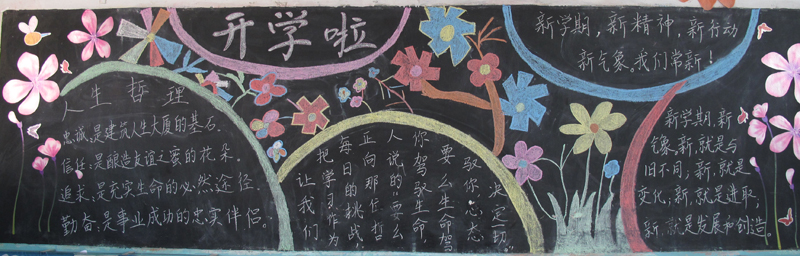 开学啦
人生哲理
忠诚:是建筑人生大厦的基石.
信任:是酿造友谊之蜜的花朵.
追求:是充实生命的必然途径.
勤奋:是事业成功的忠实伴侣。
让我们
把学习作为
每日的挑战;
正向那位哲
人说的:要么
你驾驭生命,
要么生命驾
驭你,心态
决定一切。
新学期,新精神,新行动
新气象。我们常新!
新学期,新
气象.新,就是与
旧不同;新,就是
变化;新,就是进取,
新,就是发展和创造。